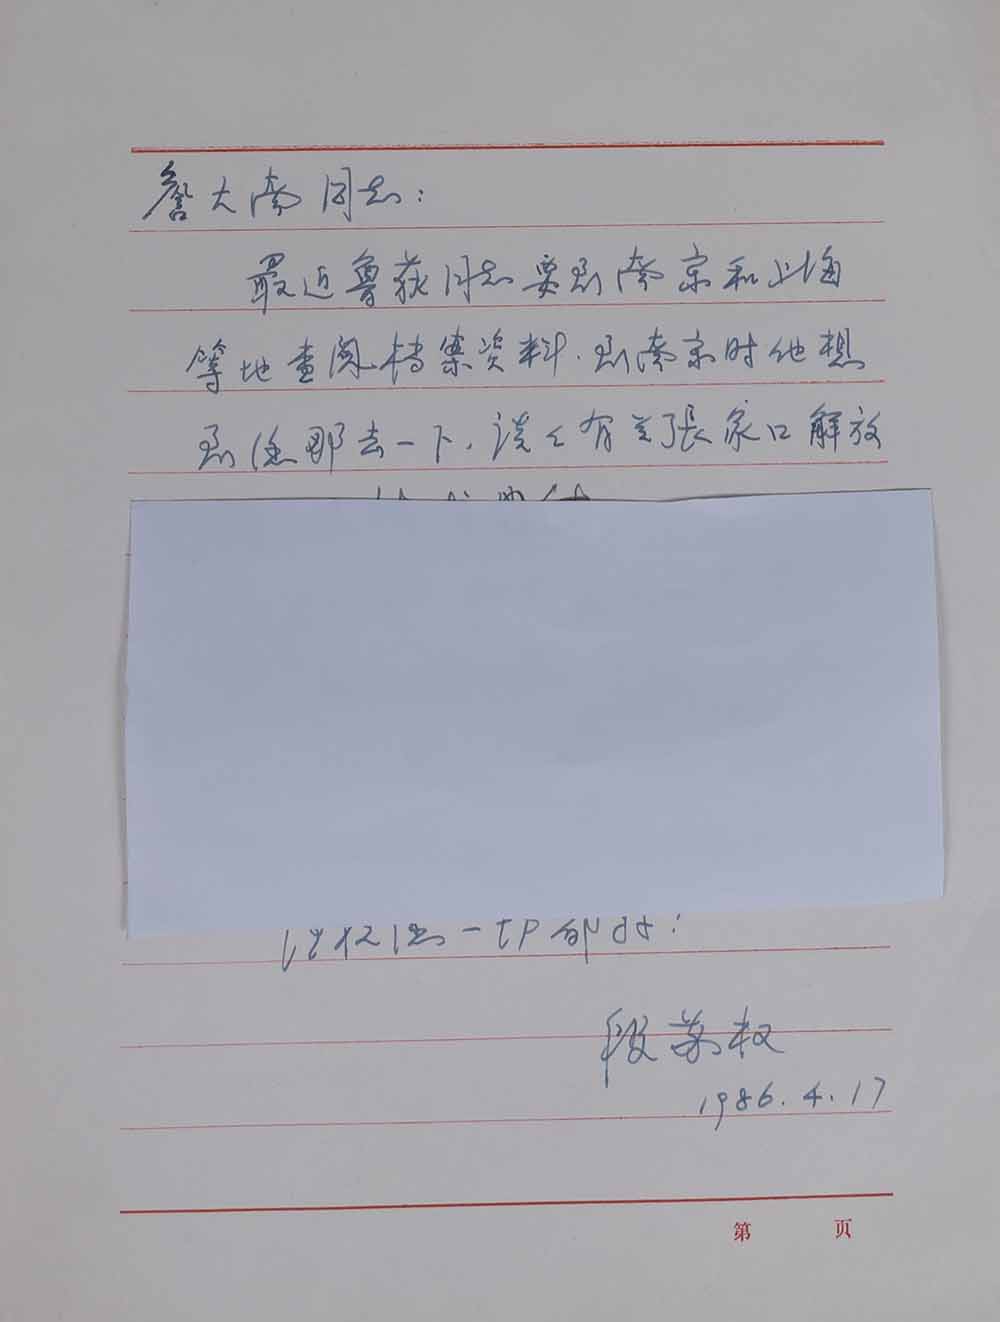 詹大南同志：
最近鲁荻同志要到南京和上海
等地查阅档案资料．到南京时他想
到您那去一下，谈々有关张家口解放
祝您一切都好！
段苏权
1986.4.17
第 页